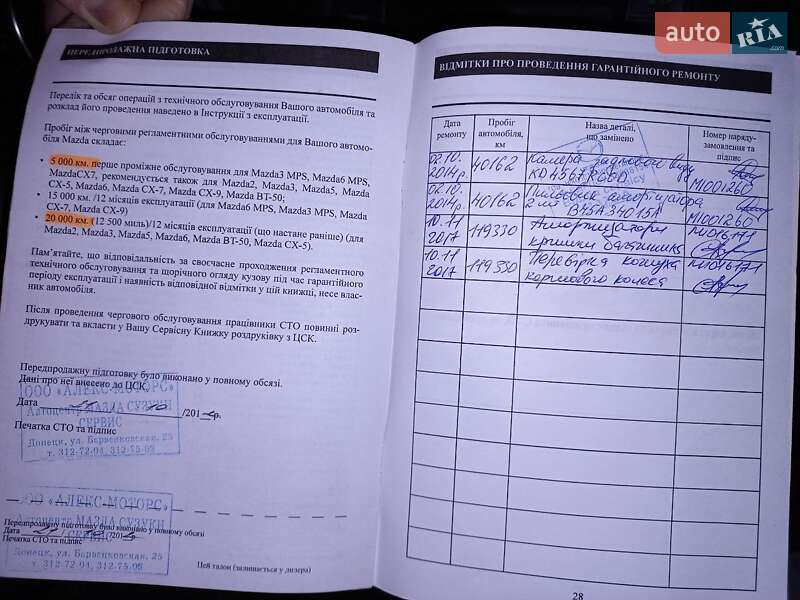 auto RIA.com
ПЕРЕДПРОДАЖНА ПІДГОТОВКА
Перелік та обсяг операцій з технічного обслуговування Вашого автомобіля та
розклад його проведення наведено в Інструкції з експлуатації.
Пробіг між черговими регламентними обслуговуваннями для Вашого автомо-
біля Mazda складає:
• 5 000 км. перше проміжне обслуговування для Mazda3 MPS, Mazda6 MPS,
MazdaCX7, рекомендується також для Mazda2, Mazda3, Mazda5, Mazda
CX-5, Mazda6, Mazda CX-7, Mazda CX-9, Mazda BT-50;
• 15 000 км. /12 місяців експлуатації (для Mazda6 MPS, Mazda3 MPS, Mazda
CX-7, Mazda CX-9)
• 20 000 км. (12 500 миль)/12 місяців експлуатації (що настане раніше) (для
Mazda2, Mazda3, Mazda5, Mazda6, Mazda BT-50, Mazda CX-5).
Пам'ятайте, що відповідальність за своєчасне проходження регламентного
технічного обслуговування та щорічного огляду кузову під час гарантійного
періоду експлуатації і наявність відповідної відмітки у цій книжці, несе влас-
ник автомобіля.
Після проведення чергового обслуговування працівники СТО повинні роз-
друкувати та вкласти у Вашу Сервісну Книжку роздруківку з ЦСК.
Передпродажну підготовку було виконано у повному обсязі.
Дані про неї внесено до ЦСК.
ООО «АЛЕКС-МОТОРС»
Дата /201 р.
Автоцентр МАЗДА СУЗУКИ
СЕРВИС
Печатка СТО та підпис
Донецк, ул. Барвенковская, 25
т. 312-72-04, 312-75-03
ООО «АЛЕКС-МОТОРС»
Автоцентр МАЗДА СУЗУКИ
Передпродажну підготовку було виконано у повному обсязі
Дата /201 р.
Печатка СТО та підпис
Донецк, ул. Барвенковская, 25
т. 312-72-04, 312-75-03
Цей талон (залишається у дилера)
ВІДМІТКИ ПРО ПРОВЕДЕННЯ ГАРАНТІЙНОГО РЕМОНТУ
Дата ремонту Пробіг автомобіля, км Назва деталі, що замінено Номер наряду-замовлення та підпис
02.10. 2014р. 40162 Камера заднього виду KD4567RC0D М1001260
02.10. 2014р. 40162 Пильовик амортизатора 2 шт B45A34015A М1001260
10.11 2017 119330 Амортизатори кришки багажника
10.11 2017 119330 Перевірка кожуха кормового колеса
28